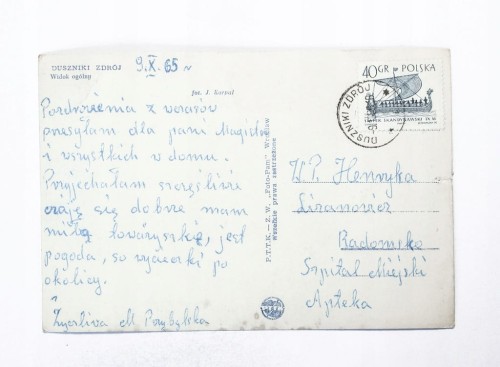 DUSZNIKI ZDRÓJ
Widok ogólny
9.X.65 r
fot. J. Korpal
Pozdrowienia z wczasów
przesyłam dla pani Magister
i wszystkich w domu.
Przyjechałam szczęśliwie
czuję się dobrze mam
miłą towarzyszkę, jest
pogoda, są wycieczki po
okolicy.
Życzliwa M Przybylska
P.T.T.K. – Z. W. „Foto-Pam” Wrocław
Wszelkie prawa zastrzeżone
40 GR POLSKA
DUSZNIKI ZDRÓJ
W.P. Henryka
Radomsko
Szpital Miejski
Apteka